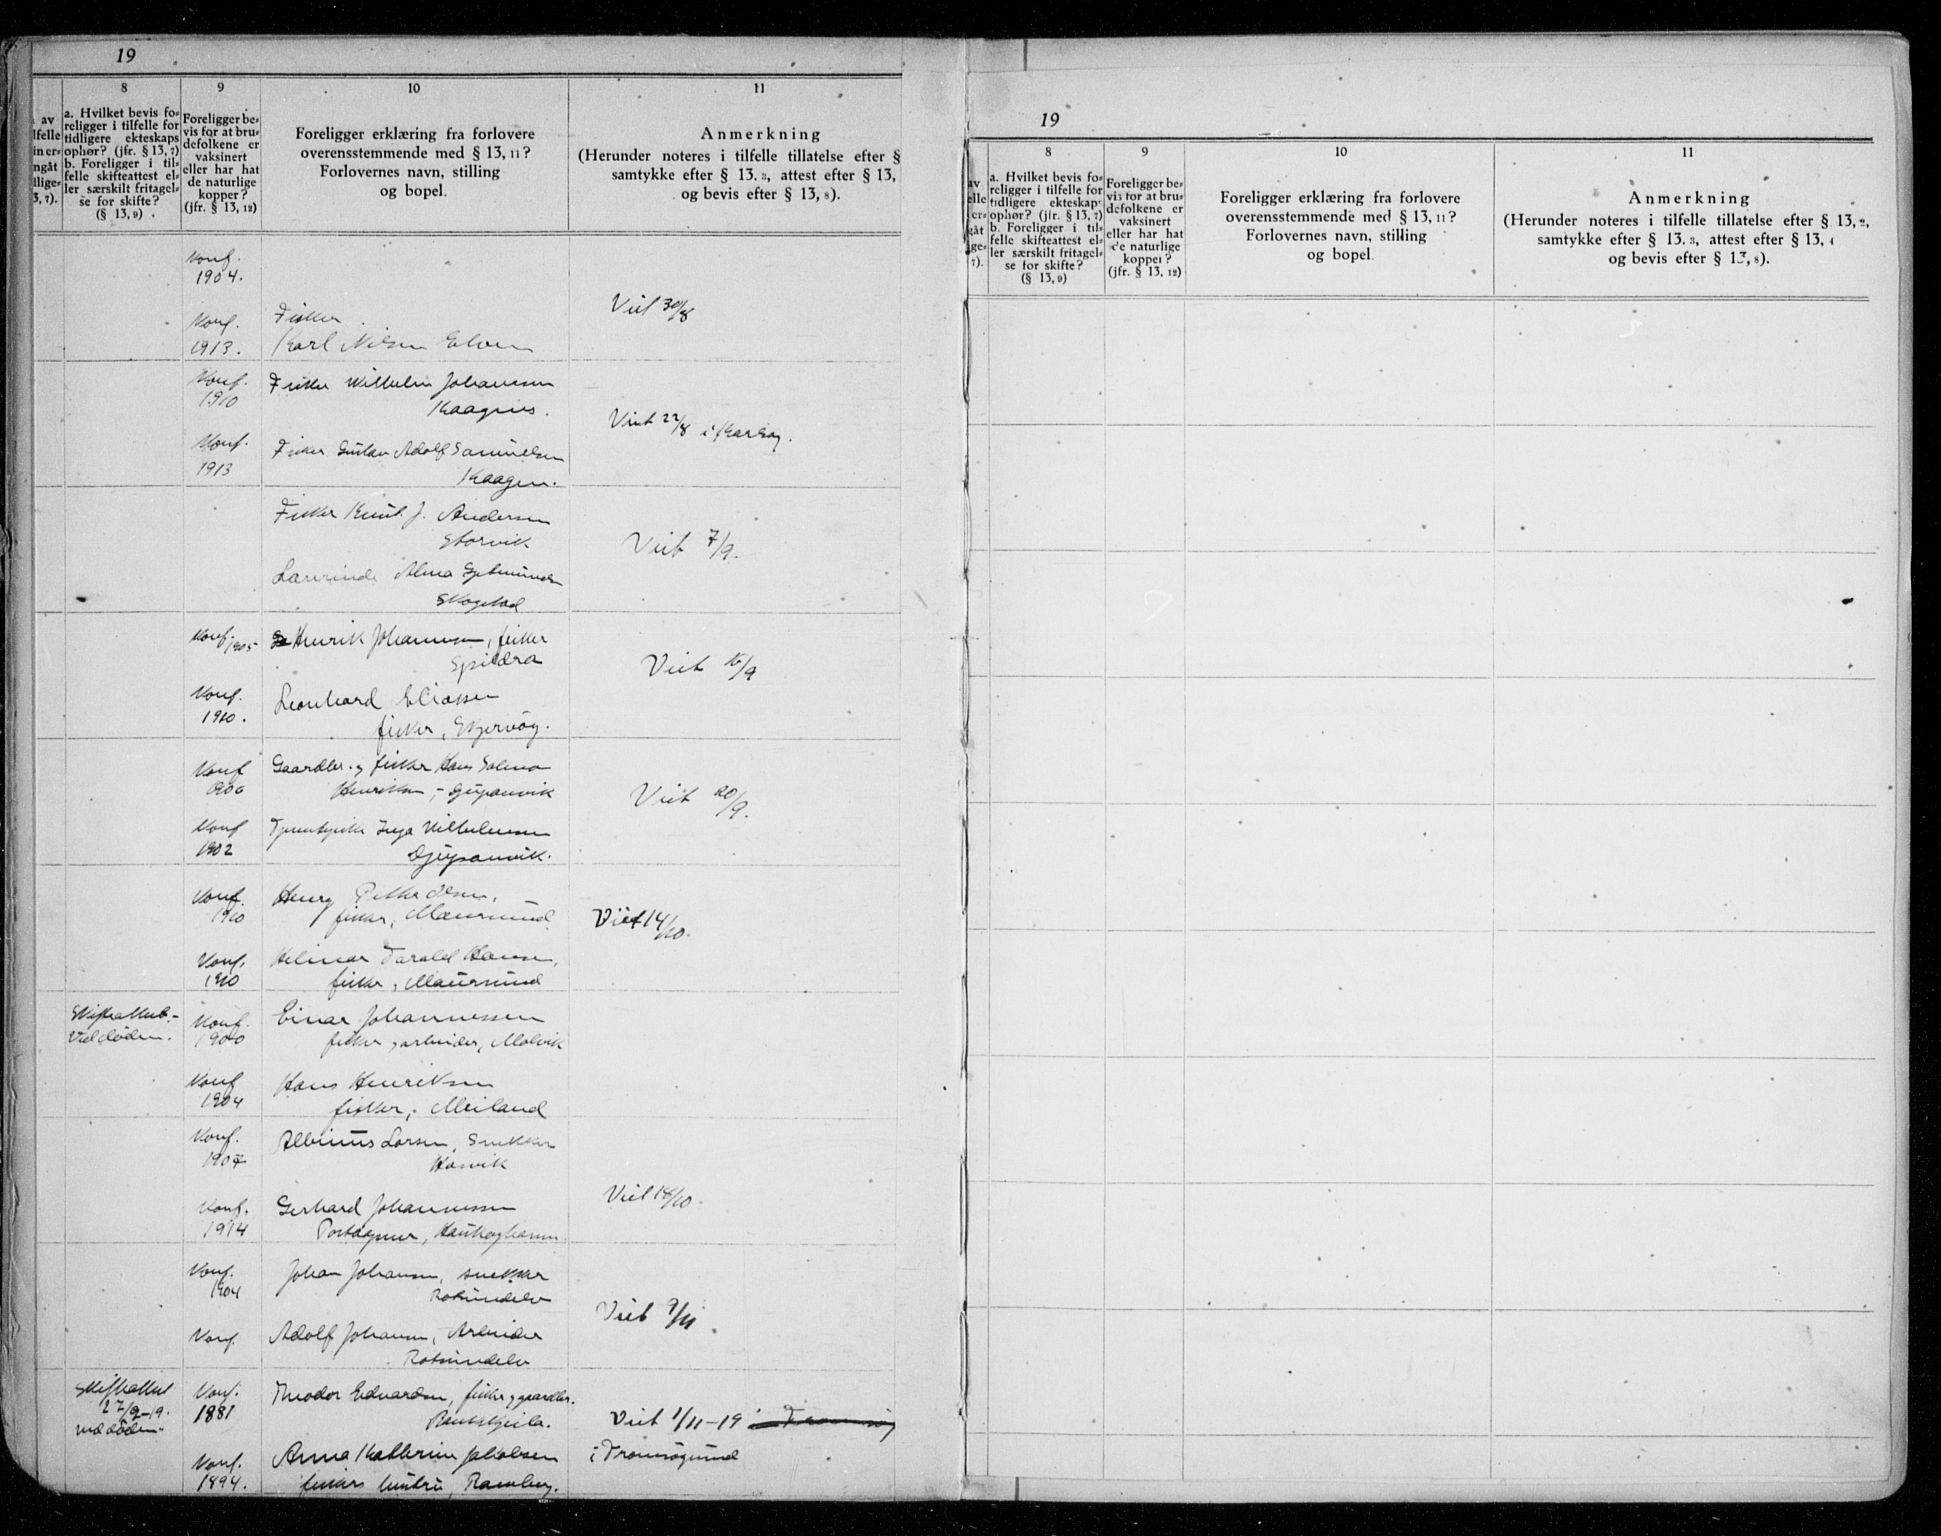 19
8
9
10
11
av
a. Hvilket bevis fo-
religger i tilfelle for
tidligere ekteskaps
ophør? (jfr. § 13, 7)
b. Foreligger i til-
felle skifteattest el-
ler særskilt fritagel-
se for skifte?
(§ 13, 9)
Foreligger be-
vis for at bru-
defolkene er
vaksinert
eller har hat
de naturlige
kopper?
(jfr. § 13, 12)
Foreligger erklæring fra forlovere
overensstemmende med § 13, 11?
Forlovernes navn, stilling
og bopel.
Anmerkning
(Herunder noteres i tilfelle tillatelse efter §
samtykke efter § 13. 3, attest efter § 13,
og bevis efter § 13, 8).
Konf.
1904.
Konf.
1913.
Fisker
Karl Nilsen Elven
Viet 30/8
Konf.
1910
Fisker Wilhelm Johansen
Kaagnes.
Konf.
1913
Fisker Gustav Adolf Samuelsen
Kaagen.
Viet 22/8 i
Fisker Knut J. Andersen
Storvik
Lærerinde Alma
Skogstad
Viet 7/9.
Konf. 1905
Henrik Johannesen, fisker
Spildra
Konf.
1910.
Leonhard Eliassen
fisker, Skjervøy.
Viet 15/9
Konf
1906
Gaardbr. og fisker Hans
Henriksen, Djupanvik
Konf
1902
Inga Vilhelmsen
Djupanvik.
Viet 20/9.
Konf.
1910
Henry Petter Olsen,
fisker, Maursund.
Konf.
1910
Hilmar Harald Hansen,
fisker, Maursund
Viet 14/10.
Skifteattest.-
Ved døden.
Konf.
1900
Einar Johannessen
fisker, arbeider, Molvik
Konf
1904
Hans Henriksen
fisker, Meiland
Konf.
1907
Albinus Larsen, Snekker
Hasvik
Konf.
1914
Gerhard Johannessen
Viet 18/10.
Konf.
1904
Johan Johansen, snekker
Rotsundelv
Konf.
Adolf Johansen, Arbeider
Rotsundelv
Viet 9/11
Skifteattest
27/9-19.
ved døden.
Konf.
1881
Theodor Edvardsen, fisker og gaardbr.
Viet 1/11-19 i Tromsø
Konf.
1894.
Anna Kathrine Jakobsen
fiskers hustru, Ramberg.
i Tromsøysund
19
8
9
10
11
a. Hvilket bevis fo-
religger i tilfelle for
tidligere ekteskaps
ophør? (jfr. § 13, 7)
b. Foreligger i til-
felle skifteattest el-
ler særskilt fritagel-
se for skifte?
(§ 13, 9)
Foreligger be-
vis for at bru-
defolkene er
vaksinert
eller har hat
de naturlige
kopper?
(jfr. § 13, 12)
Foreligger erklæring fra forlovere
overensstemmende med § 13, 11?
Forlovernes navn, stilling
og bopel.
Anmerkning
(Herunder noteres i tilfelle tillatelse efter § 13, 2,
samtykke efter § 13. 3, attest efter § 13, 4
og bevis efter § 13, 8).